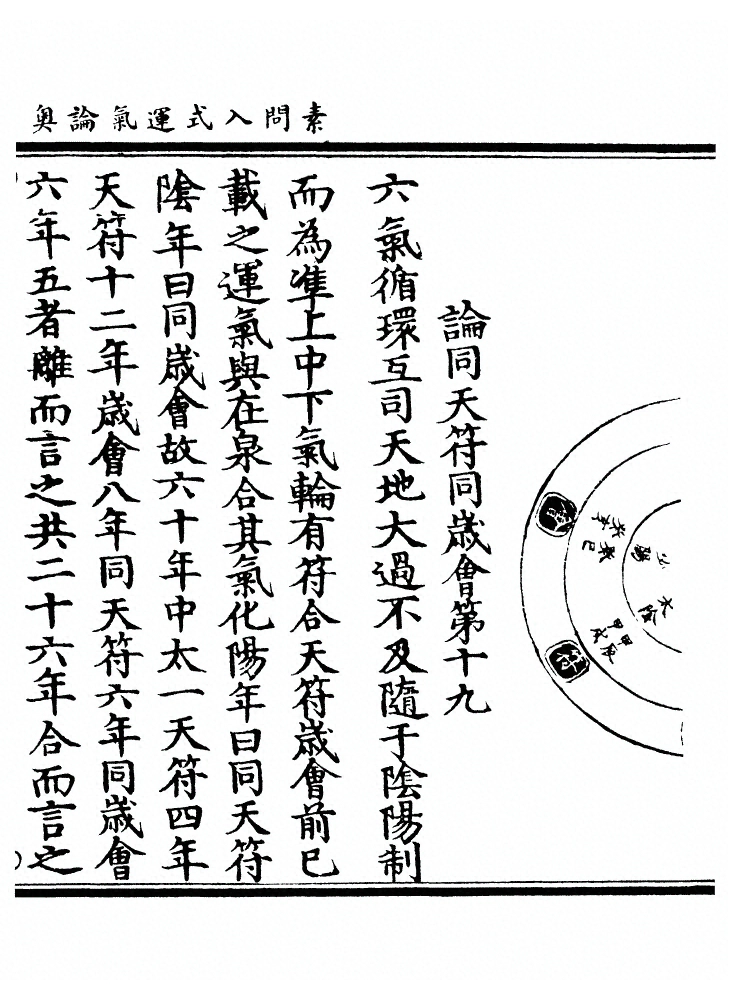 素問入式運氣論奥
會
癸亥
癸巳
少陽
太陰
甲辰
甲戌
符
論同天符同歲會第十九
六氣循環互司天地大過不及隨于陰陽制
而為準上中下氣輪有符合天符歲會前已
載之運氣與在泉合其氣化陽年曰同天符
陰年曰同歲會故六十年中太一天符四年
天符十二年歲會八年同天符六年同歲會
六年五者離而言之共二十六年合而言之